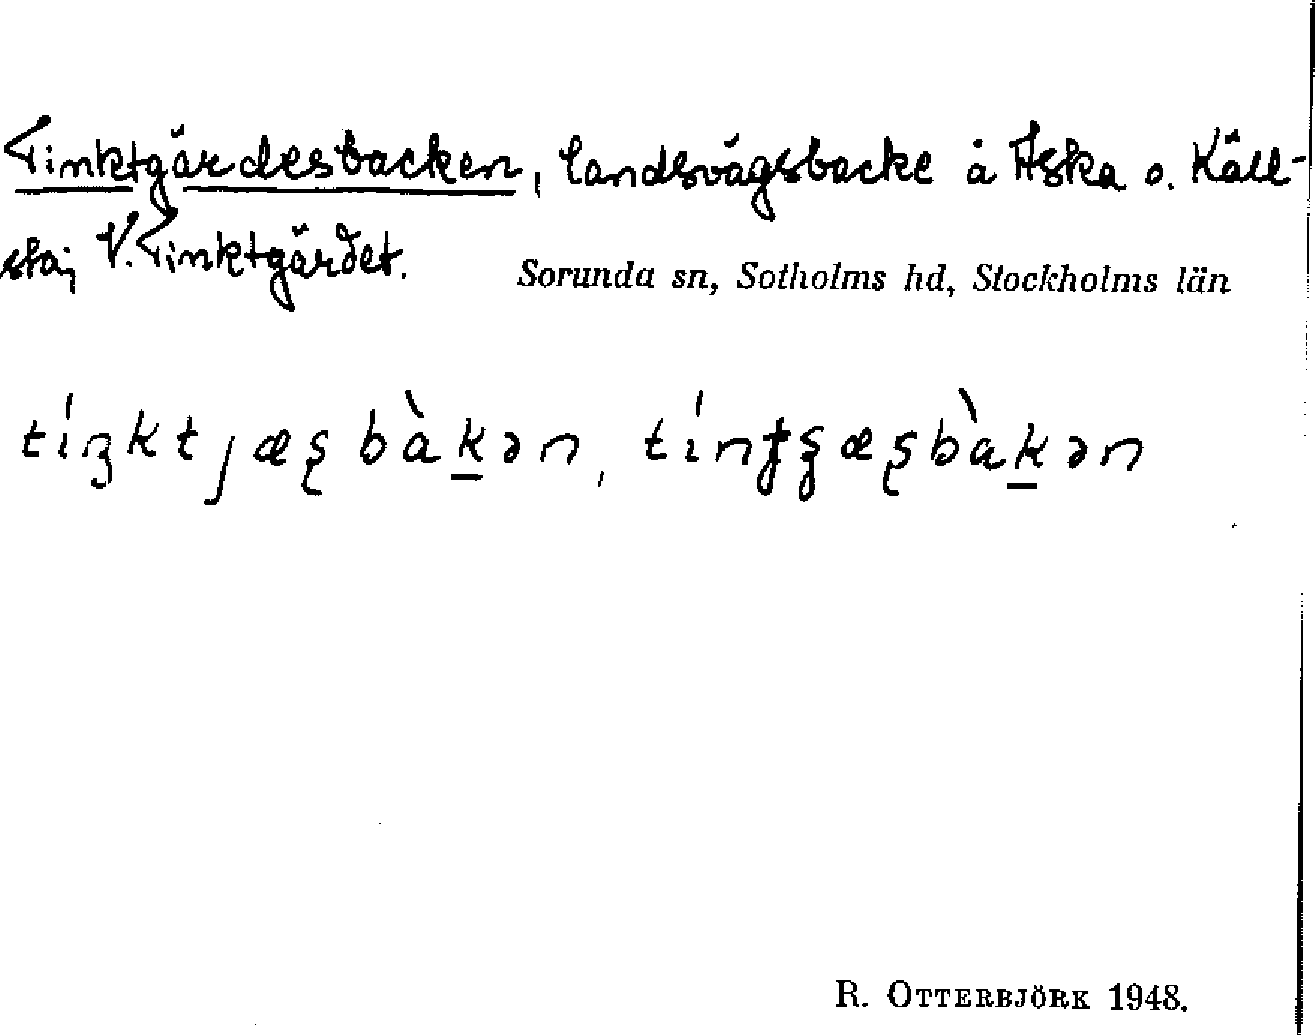 Tinktgärdesbacken, landsvägsbacke å Aska o. Käll-
sta; V. Tinktgärdet. Sorunda sn, Sotholms hd, Stockholms län
R. OTTERBJÖRK 1948.